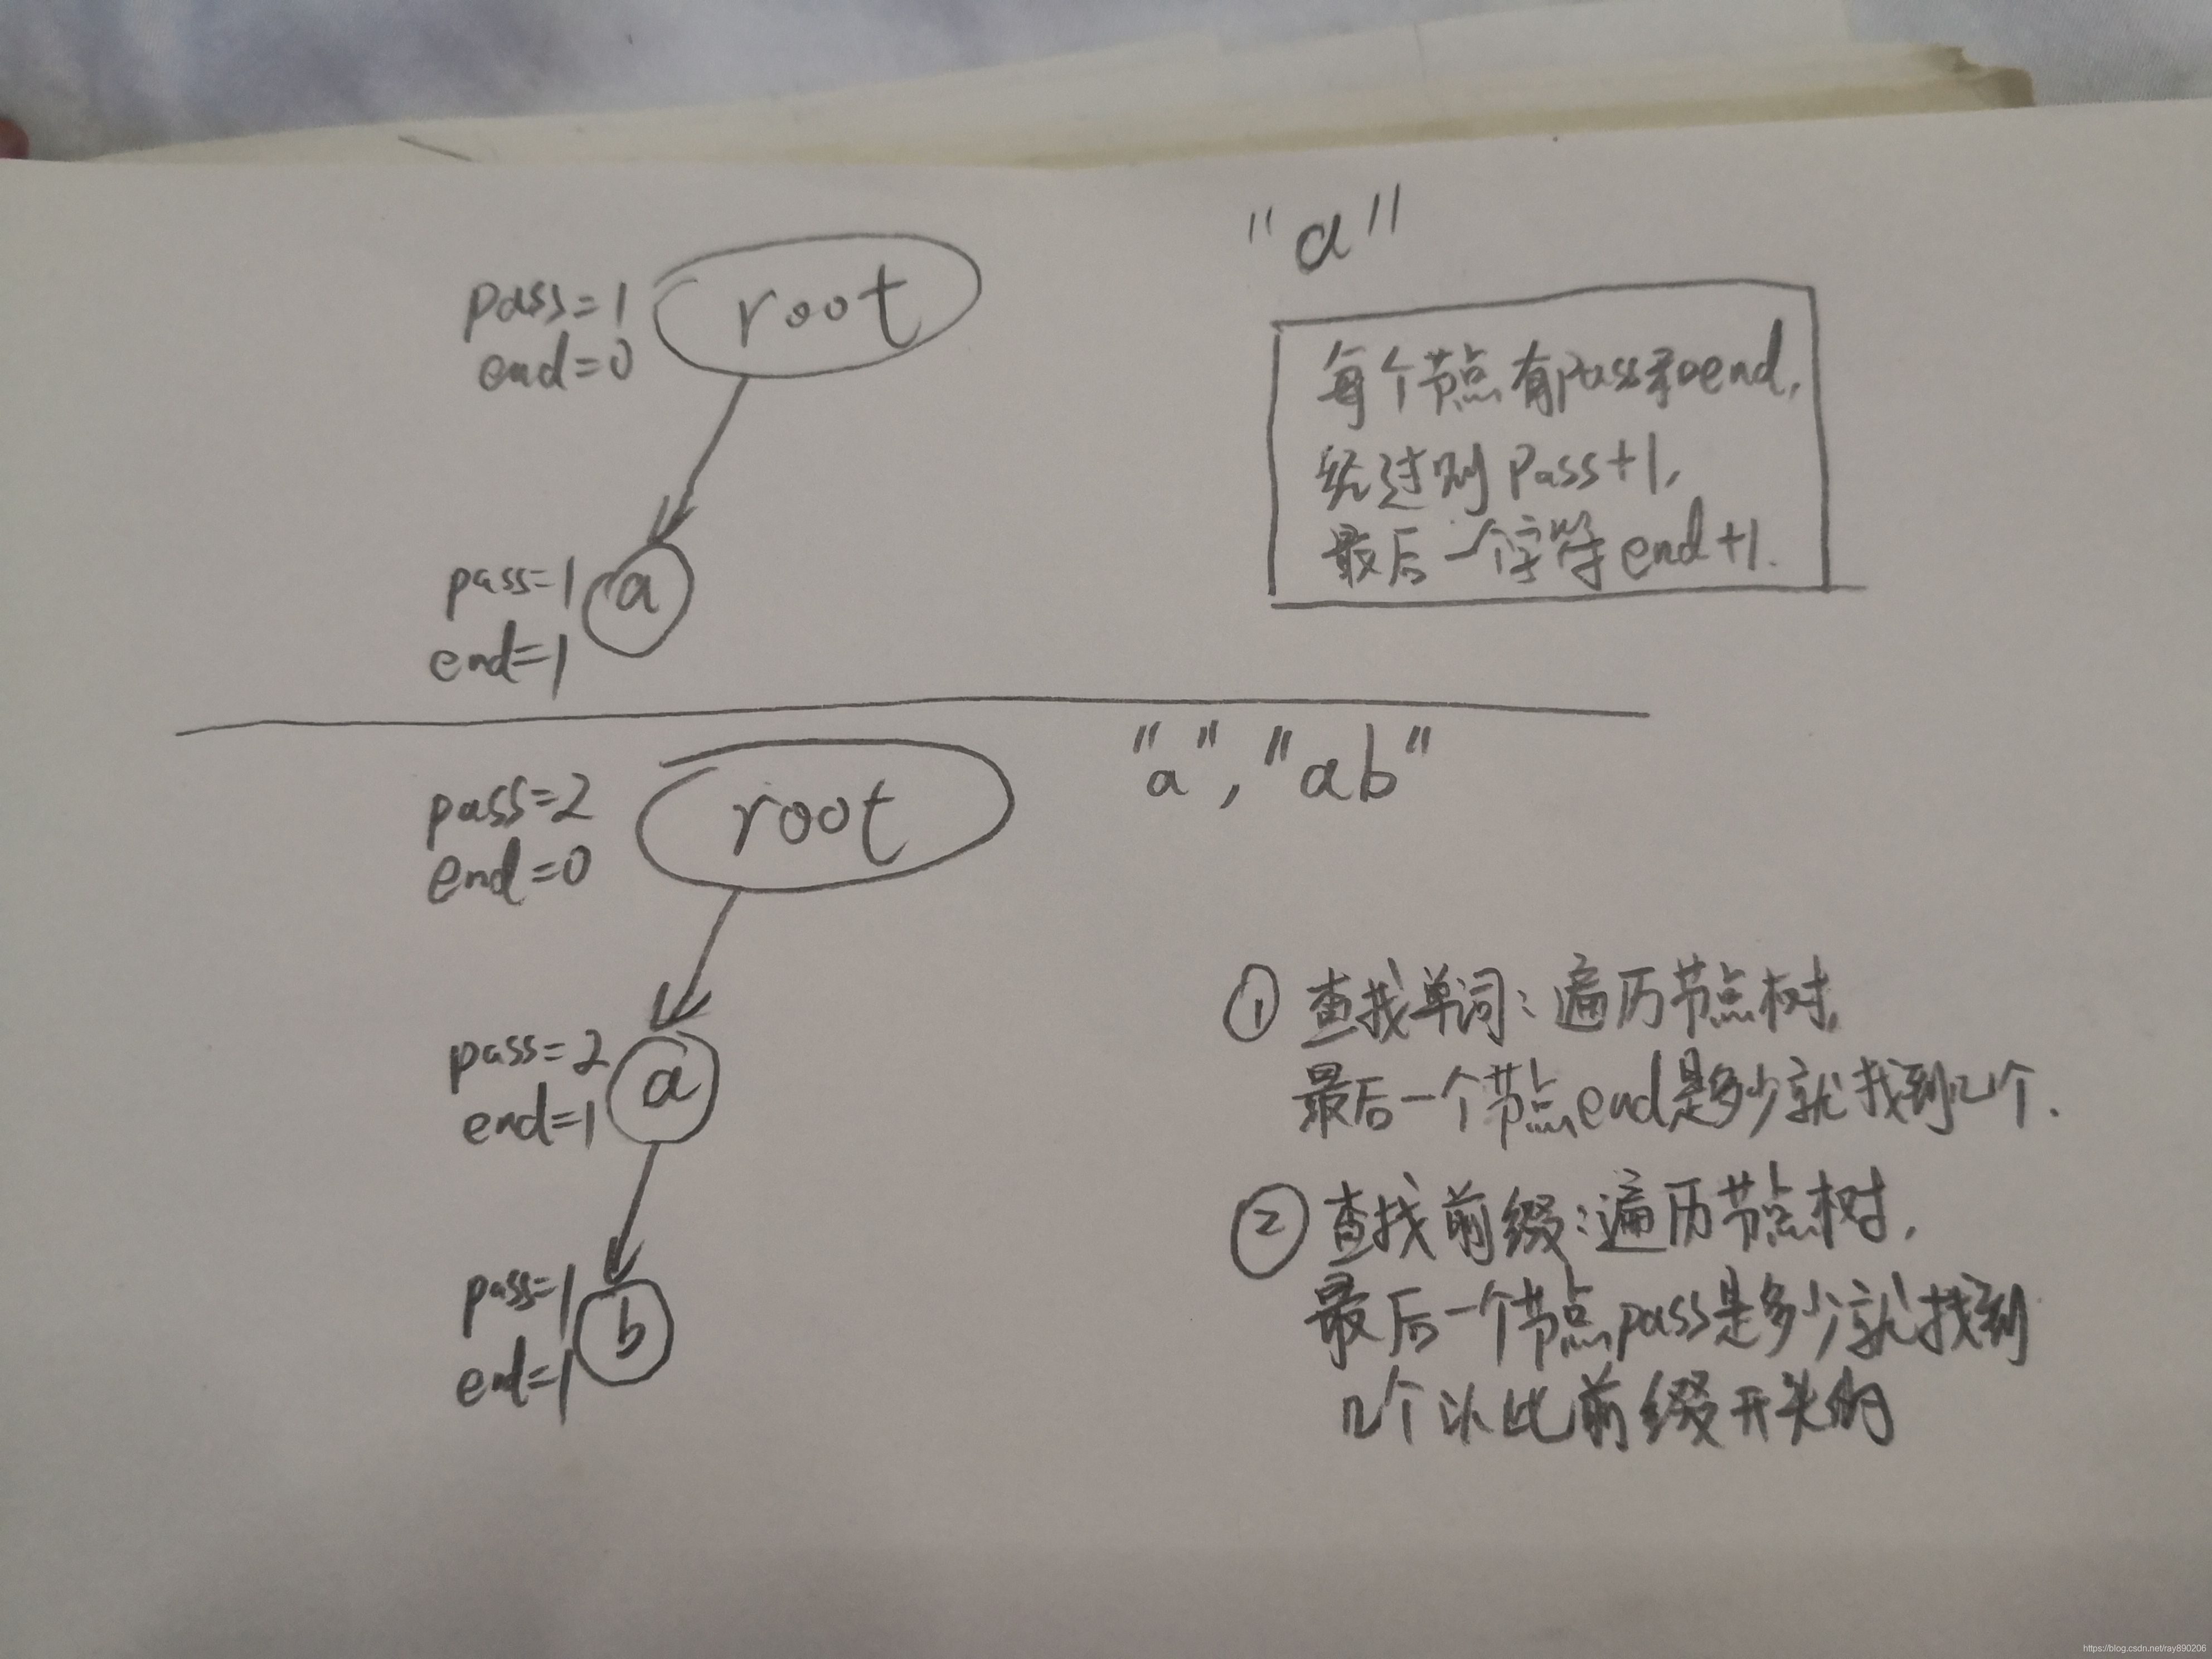 "a"
pass=1
end=0
root
每个节点有pass和end,
经过则pass+1,
最后一个字符end+1.
pass=1
end=1
a
"a","ab"
pass=2
end=0
root
pass=2
end=1
a
pass=1
end=1
b
① 查找单词:遍历节点树,
最后一个节点end是多少就找到几个.
② 查找前缀:遍历节点树,
最后一个节点pass是多少就找到
几个以此前缀开头的
https://blog.csdn.net/ray890206